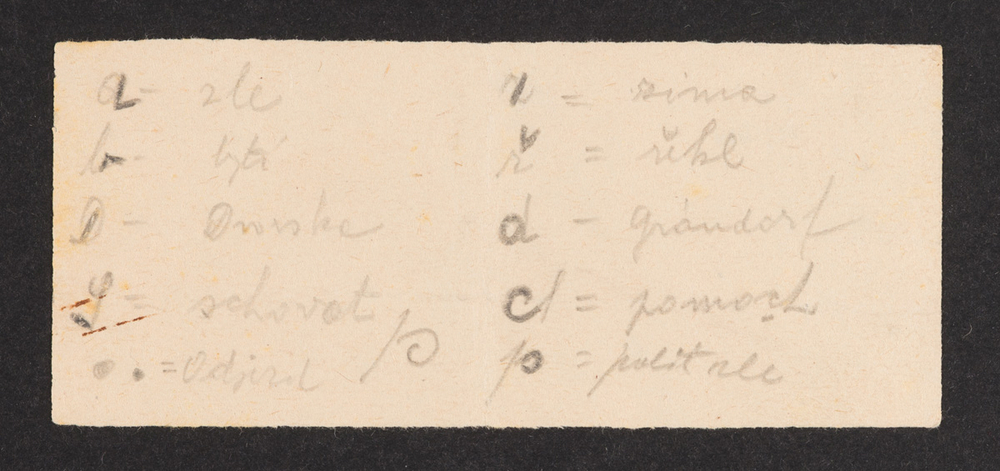 a - zle
b - bytí
D - Dvorska
= schovat
. . = Odjezd
z = zima
ř = řekl
d - Grandorf
ch = pomoch
p = polit zle